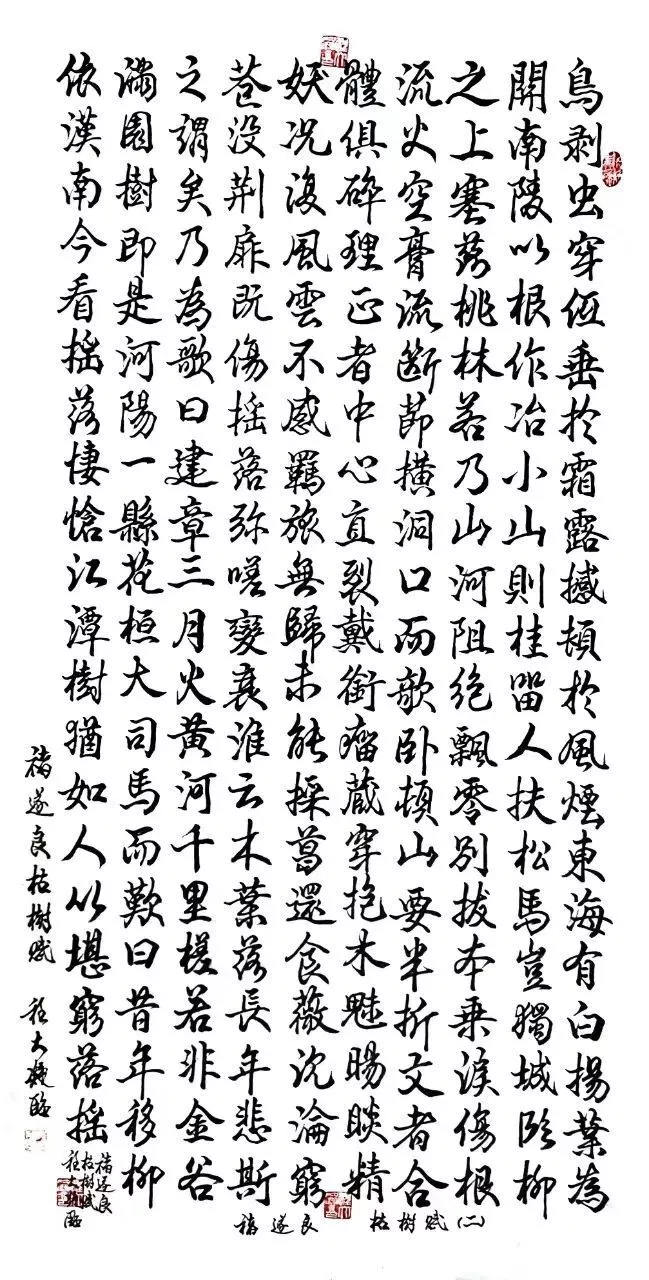 鳥剥虫穿伍垂於霜露撼頓於風煙東海有白揚葉為
開南陵以根作冶小山則桂留人扶松馬豈獨城臨柳
之上塞落桃林若乃山河阻絶飄零別拔本乗淚傷根
流火空膏流斷節撗洞口而欹卧頓山要半折文者合
體俱碎理正者中心直裂戴銜瘤藏穿抱木魅睗睒精
妖况復風雲不感羈旅無歸未能採葛還食薇沉淪窮
苍没荆扉既傷揺落弥嗟變衰淮云木葉落長年悲斯
之謂矣乃為歌曰建章三月火黄河千里槎若非金谷
滿園樹即是河陽一縣花桓大司馬而歎曰昔年移柳
依漢南今看揺落悽愴江潭樹猶如人以堪窮落揺
褚遂良枯樹賦 程大臨
褚遂良
枯樹賦
程大臨
褚遂良 枯樹賦(二)